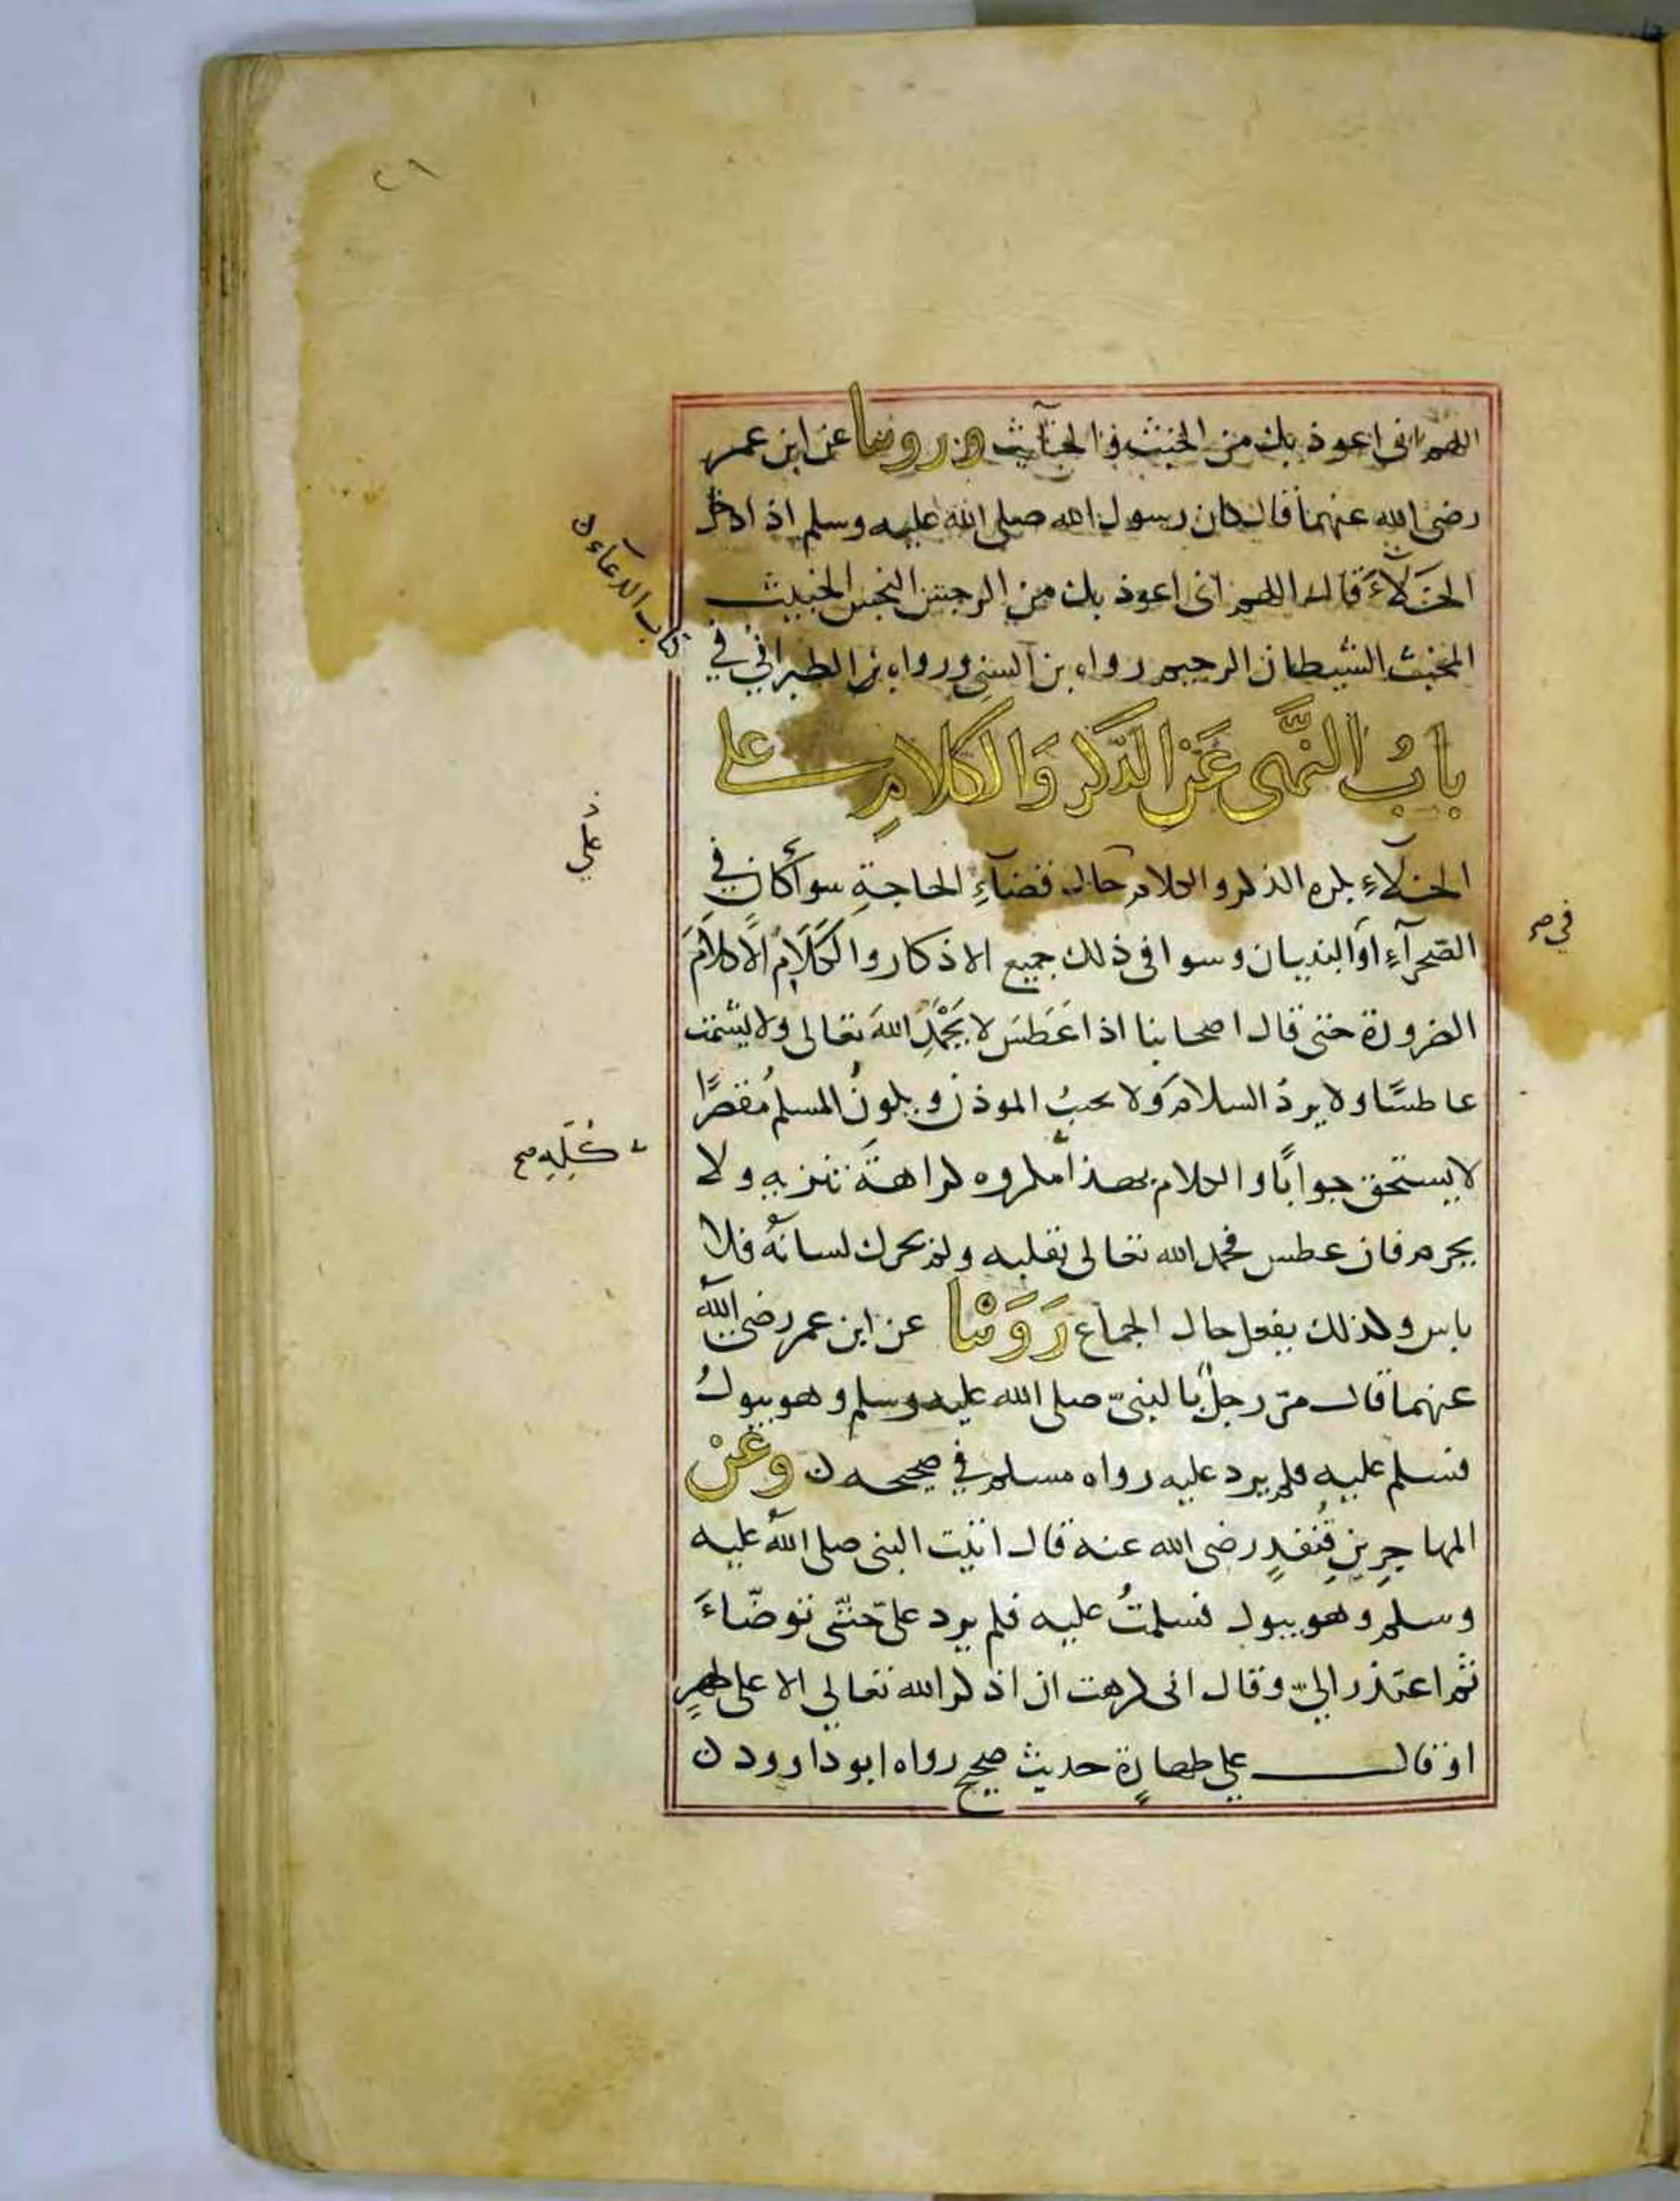 ٢٦
اللهم انى اعوذ بك من الخبث والخبآيث وروينا عن ابن عمر
رضى الله عنهما قال كان رسول الله صلى الله عليه وسلم اذا دخل
الخَلآءَ قال اللهم انى اعوذ بك من الرجس النجس الخبيث
المخبث الشيطان الرجيم رواه بن السنى ورواه الطبرانى في
كتاب الدعآء ن
بابُ النَّهى عَن الذكر وَالكلامِ على
الخلآءِ يكره الذكر والكلام حال قضآءِ الحاجة سوأ كان في
الصّحرآءِ او البنيان وسوا فى ذلك جميع الاذكار والكَلَامُ الّا كلامَ
الضرورة حتى قال اصحابنا اذا عَطَسَ لا يَحْمَدِ اللهَ تعالى ولا يشمت
عاطسًا ولا يردُ السلام ولا يجيبُ الموذن ويكونُ المسلم مُقصرًا
لا يستحق جوابًا والكلام بهذا مكروه كراهةَ تنزيه ولا
يحرم فان عطس فحمد الله تعالى بقلبه ولم يحرك لسانهُ فلا
باس وكذلك يفعل حال الجماع رَوَيْنا عن ابن عمر رضى الله
عنهما قال مرّ رجلٌ بالنبىّ صلى الله عليه وسلم وهو يبولُ
فسلم عليه فلم يرد عليه رواه مسلم في صحيحه ن وعَنْ
المهاجِرِ بنِ قُنفدٍ رضى الله عنه قال اتيت النبى صلى الله عليه
وسلم وهو يبول فسلمتُ عليه فلم يرد علىّ حتّى توضّاءَ
ثم اعتذر الىّ وقال انى كرهت ان اذكر الله تعالى الا على طهرٍ
او قال على طهارةٍ حديث صحيح رواه ابو داوود ن
في صح
كُلِّهِ صح